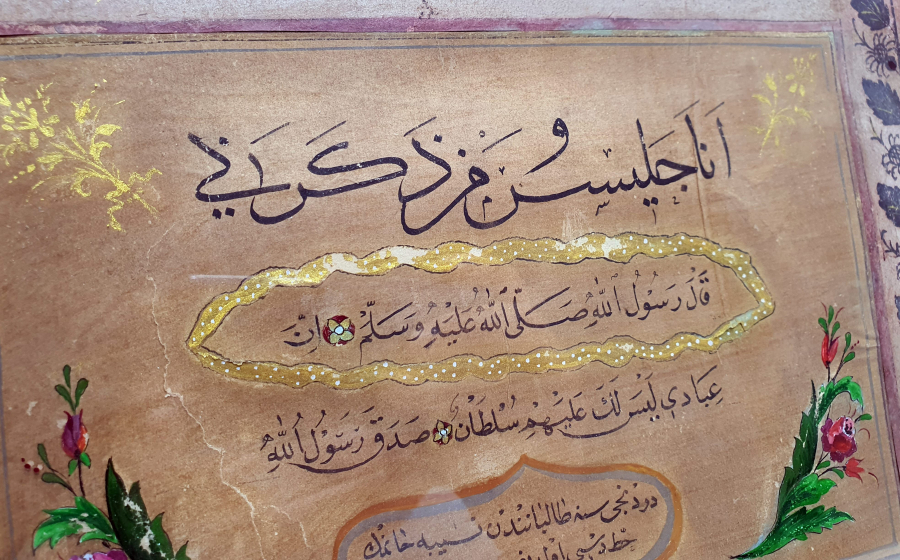 اَنَا جَلِيسُ مَنْ ذَكَرَنِي
قَالَ رَسُولُ اللّٰهِ صَلَّى اللّٰهُ عَلَيْهِ وَسَلَّمْ اِنَّ
عِبَادِي لَيْسَ لَكَ عَلَيْهِمْ سُلْطَانٌ صَدَقَ رَسُولُ اللّٰهِ
دردنجى سنه طالباتندن نسيبه خانمك